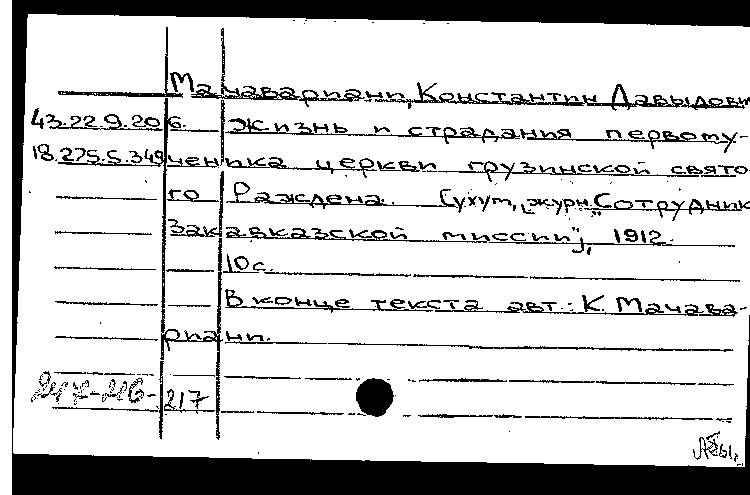 Мачавариани, Константин Давыдови
43.22.9.206. Жизнь и страдания первому-
18.275.5.349 ченика церкви грузинской свято
го Раждена. Сухум, [журн. „Сотрудник
Закавказской миссии"], 1912.
10с.
В конце текста авт.: К. Мачава-
риани.
217-216- 217